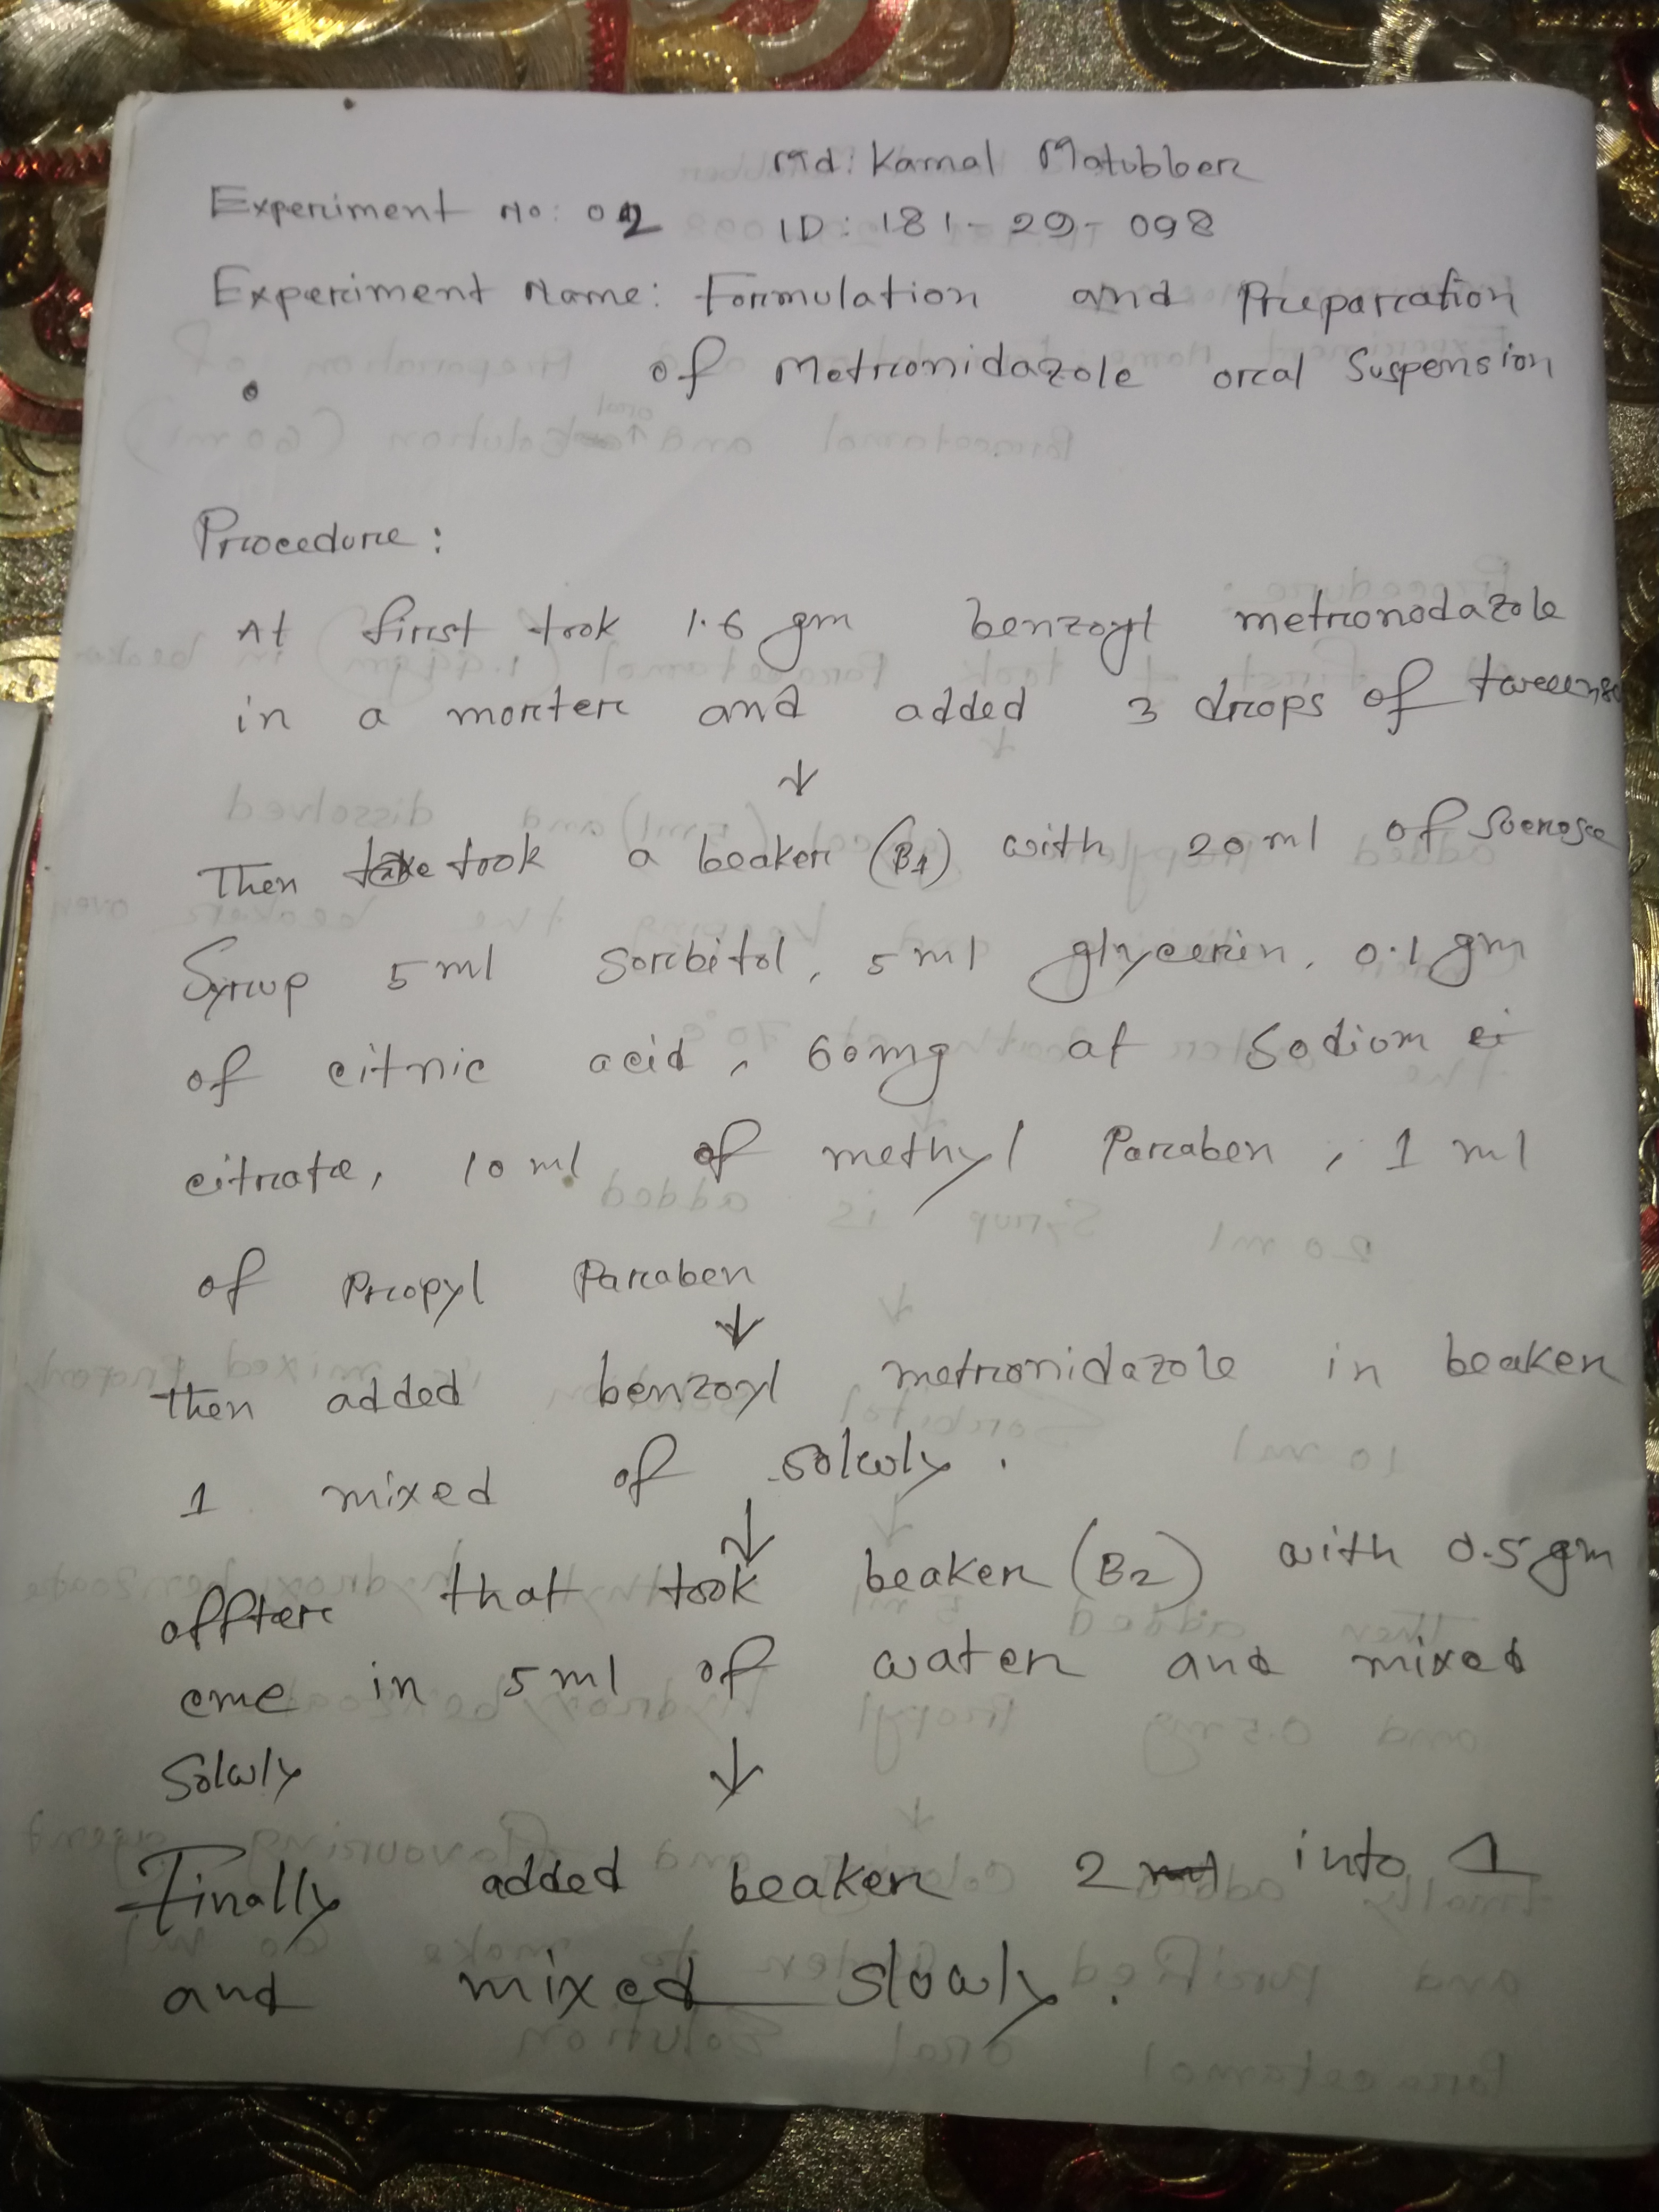 Md: Kamal Matubber
Experiment No: 02
ID: 181-29-098
Experiment Name: Formulation and Preparation
of Metronidazole oral Suspension
Procedure:
At first took 1.6 gm benzoyl metronodazole
in a morter and added 3 drops of tween80
↓
Then took a beaker (B1) with 20 ml of Sucrose
Syrup 5 ml Sorbitol, 5 ml glycerin, 0.1 gm
of citric acid, 60 mg of Sodium ci
citrate, 10 ml of methyl Paraben, 1 ml
of Propyl Paraben
↓
Then added benzoyl metronidazole in beaker
1 mixed of solwly.
↓
affter that took beaker (B2) with 0.5 gm
cmc in 5 ml of water and mixed
Solwly
↓
Finally added beaker 2 into 1
and mixed slowly.